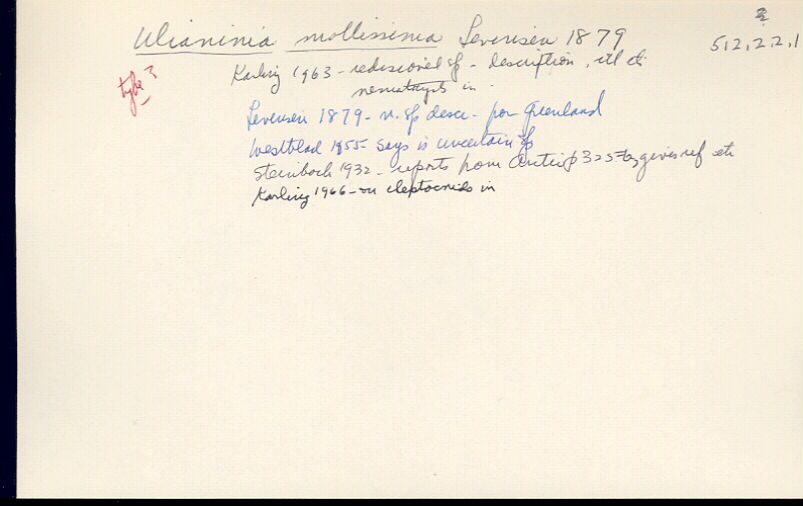 2
Ulianinia mollissima Levinsen 1879
512,2,2,1
type?
Karling 1963 - rediscovered sp - description, ill etc
nematocysts in
Levinsen 1879 - n. sp desc. from Greenland
Westblad 1955 says is uncertain sp
Steinbock 1932 - reports from Arctic p 325 gives ref etc
Karling 1966 - on cleptocnids in